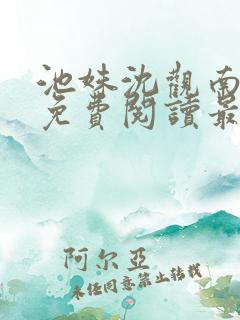 池妹沈觀南
免費閱讀最
阿尔亚
未经同意禁止转载